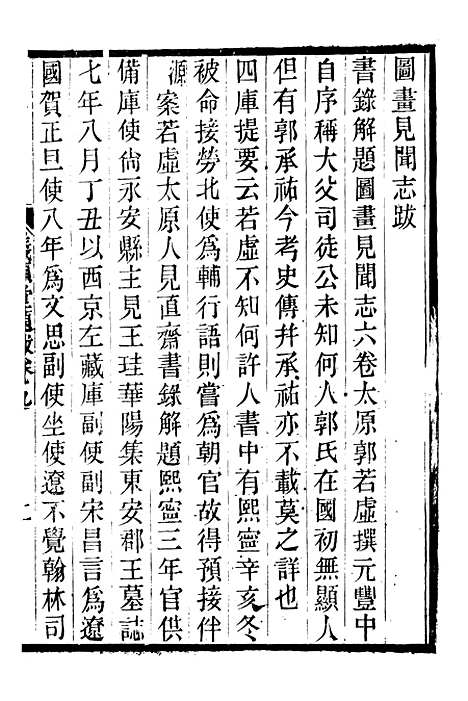 圖畫見聞志跋
書錄解題圖畫見聞志六卷太原郭若虛撰元豐中
自序稱大父司徒公未知何人郭氏在國初無顯人
但有郭承祐今考史傳幷承祐亦不載莫之詳也
四庫提要云若虛不知何許人書中有熙寧辛亥冬
被命接勞北使爲輔行語則嘗爲朝官故得預接伴
源案若虛太原人見直齋書錄解題熙寧三年官供
備庫使尙永安縣主見王珪華陽集東安郡王墓誌
七年八月丁丑以西京左藏庫副使副宋昌言爲遼
國賀正旦使八年爲文思副使坐使遼不覺翰林司